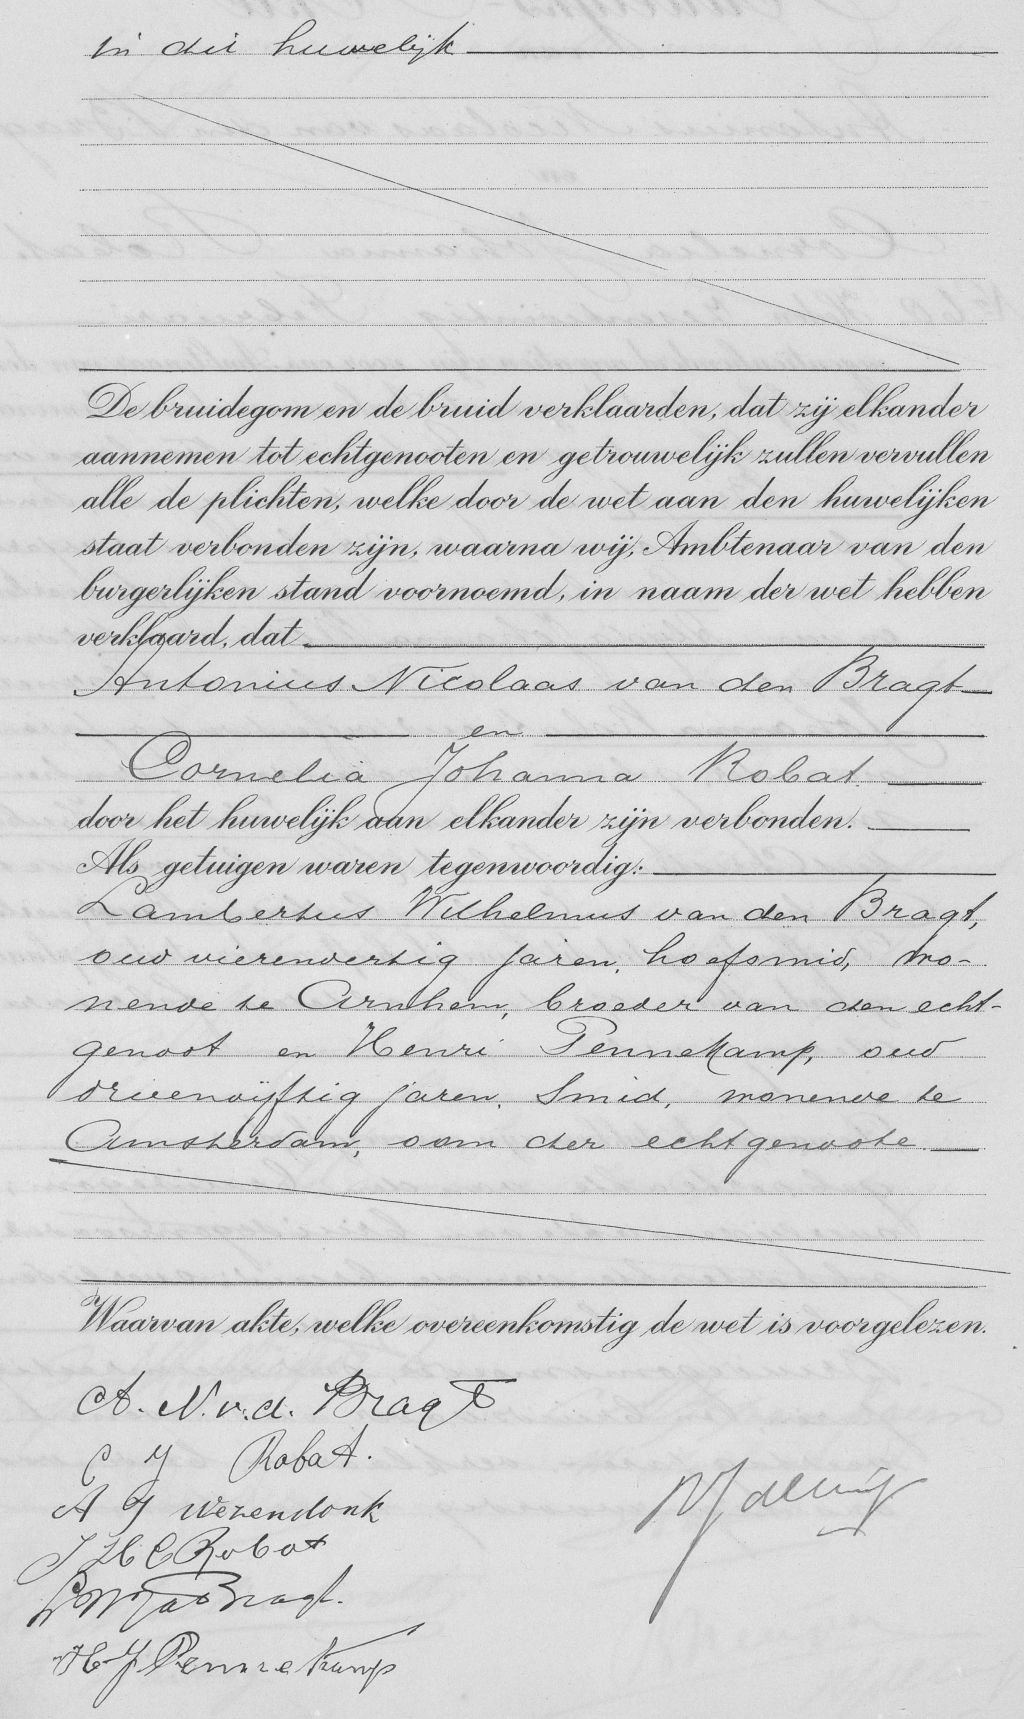 in dit huwelijk
De bruidegom en de bruid verklaarden, dat zij elkander
aannemen tot echtgenooten en getrouwelijk zullen vervullen
alle de plichten, welke door de wet aan den huwelijken
staat verbonden zijn, waarna wij, Ambtenaar van den
burgerlijken stand voornoemd, in naam der wet hebben
verklaard, dat
Antonius Nicolaas van den Bragt
en
Cornelia Johanna Robat
door het huwelijk aan elkander zijn verbonden.
Als getuigen waren tegenwoordig:
Lambertus Wilhelmus van den Bragt,
oud vierenveertig jaren, hoefsmid, wo-
nende te Arnhem, broeder van den echt-
genoot en Henri Pennekamp, oud
drieenvijftig jaren, smid, wonende te
Amsterdam, oom der echtgenoote.
Waarvan akte, welke overeenkomstig de wet is voorgelezen.
A. N. v. d. Bragt
C J Robat.
A J Wezendonk
J H C Robat
Bragt.
H J Pennekamp